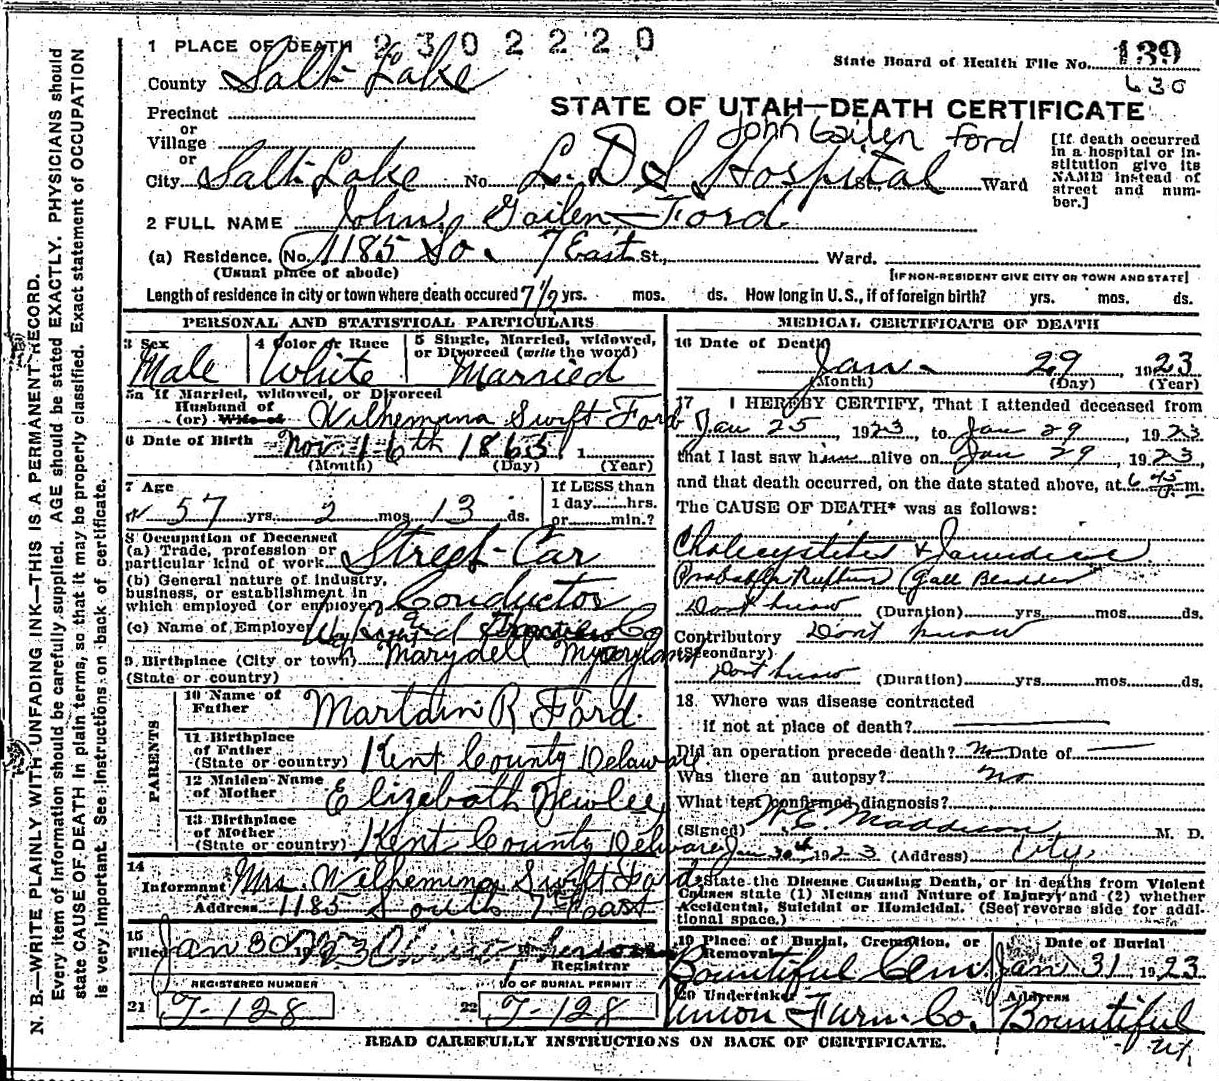 N. B.—WRITE PLAINLY WITH UNFADING INK—THIS IS A PERMANENT RECORD.
Every item of information should be carefully supplied. AGE should be stated EXACTLY. PHYSICIANS should
state CAUSE OF DEATH in plain terms, so that it may be properly classified. Exact statement of OCCUPATION
is very important. See instructions on back of certificate.
1 PLACE OF DEATH 2302220
State Board of Health File No. 139
630
County Salt Lake
STATE OF UTAH—DEATH CERTIFICATE
Precinct
or
Village
or
John Gailen Ford
[If death occurred in a hospital or institution give its NAME instead of street and number.]
City Salt Lake No. L. D S Hospital St. Ward
2 FULL NAME John Gailen Ford
(a) Residence. (No. 1185 So. 7 East St., Ward.
(Usual place of abode) [IF NON-RESIDENT GIVE CITY OR TOWN AND STATE]
Length of residence in city or town where death occured 7 1/2 yrs. mos. ds. How long in U.S., if of foreign birth? yrs. mos. ds.
PERSONAL AND STATISTICAL PARTICULARS
3 Sex 4 Color or Race 5 Single, Married, widowed, or Divorced (write the word)
Male White Married
5a If Married, widowed, or Divorced
Husband of
(or) Wife of Wilhemina Swift Ford
6 Date of Birth Nov. 16th 1865 1
(Month) (Day) (Year)
7 Age If LESS than
57 yrs. 2 mos. 13 ds. 1 day hrs.
or min.?
8 Occupation of Deceased
(a) Trade, profession or
particular kind of work Street-Car
(b) General nature of industry,
business, or establishment in
which employed (or employer) Conductor
(c) Name of Employer Co
9 Birthplace (City or town) Marydell Maryland
(State or country)
PARENTS
10 Name of
Father Martain R Ford
11 Birthplace
of Father
(State or country) Kent County Delaware
12 Maiden Name
of Mother Elizebath Newlee
13 Birthplace
of Mother
(State or country) Kent County Delware
14
Informant Mrs. Wilhemina Swift Ford
Address 1185 South 7 East
15
Filed Jan 30 1923
Registrar
REGISTERED NUMBER NO OF BURIAL PERMIT
21 F-128 22 F-128
MEDICAL CERTIFICATE OF DEATH
16 Date of Death
Jan. 29 1923
(Month) (Day) (Year)
17 I HEREBY CERTIFY, That I attended deceased from
Jan 25, 1923, to Jan 29, 1923
that I last saw him alive on Jan 29, 1923,
and that death occurred, on the date stated above, at 6 45 m.
The CAUSE OF DEATH* was as follows:
Cholecystites + Jaundice
Probably Rupture Gall Bladder
Dont know (Duration) yrs. mos. ds.
Contributory Dont know
(Secondary)
Dont know (Duration) yrs. mos. ds.
18. Where was disease contracted
if not at place of death?
Did an operation precede death? No Date of
Was there an autopsy? no
What test confirmed diagnosis?
(Signed) Maddison, M. D.
Jan 30th 1923 (Address) City.
*State the Disease Causing Death, or in deaths from Violent
Causes state (1) Means and Nature of Injury; and (2) whether
Accidental, Suicidal or Homicidal. (See reverse side for additional space.)
19 Place of Burial, Cremation, or Removal Date of Burial
Bountiful Cem. Jan 31 1923
20 Undertaker Address
Union Furn. Co. Bountiful
Ut.
READ CAREFULLY INSTRUCTIONS ON BACK OF CERTIFICATE.